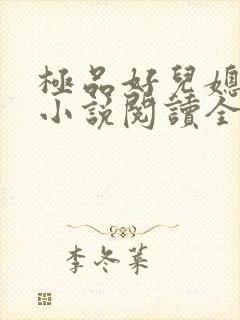 極品好兒媳
小說閱讀全
李冬葉